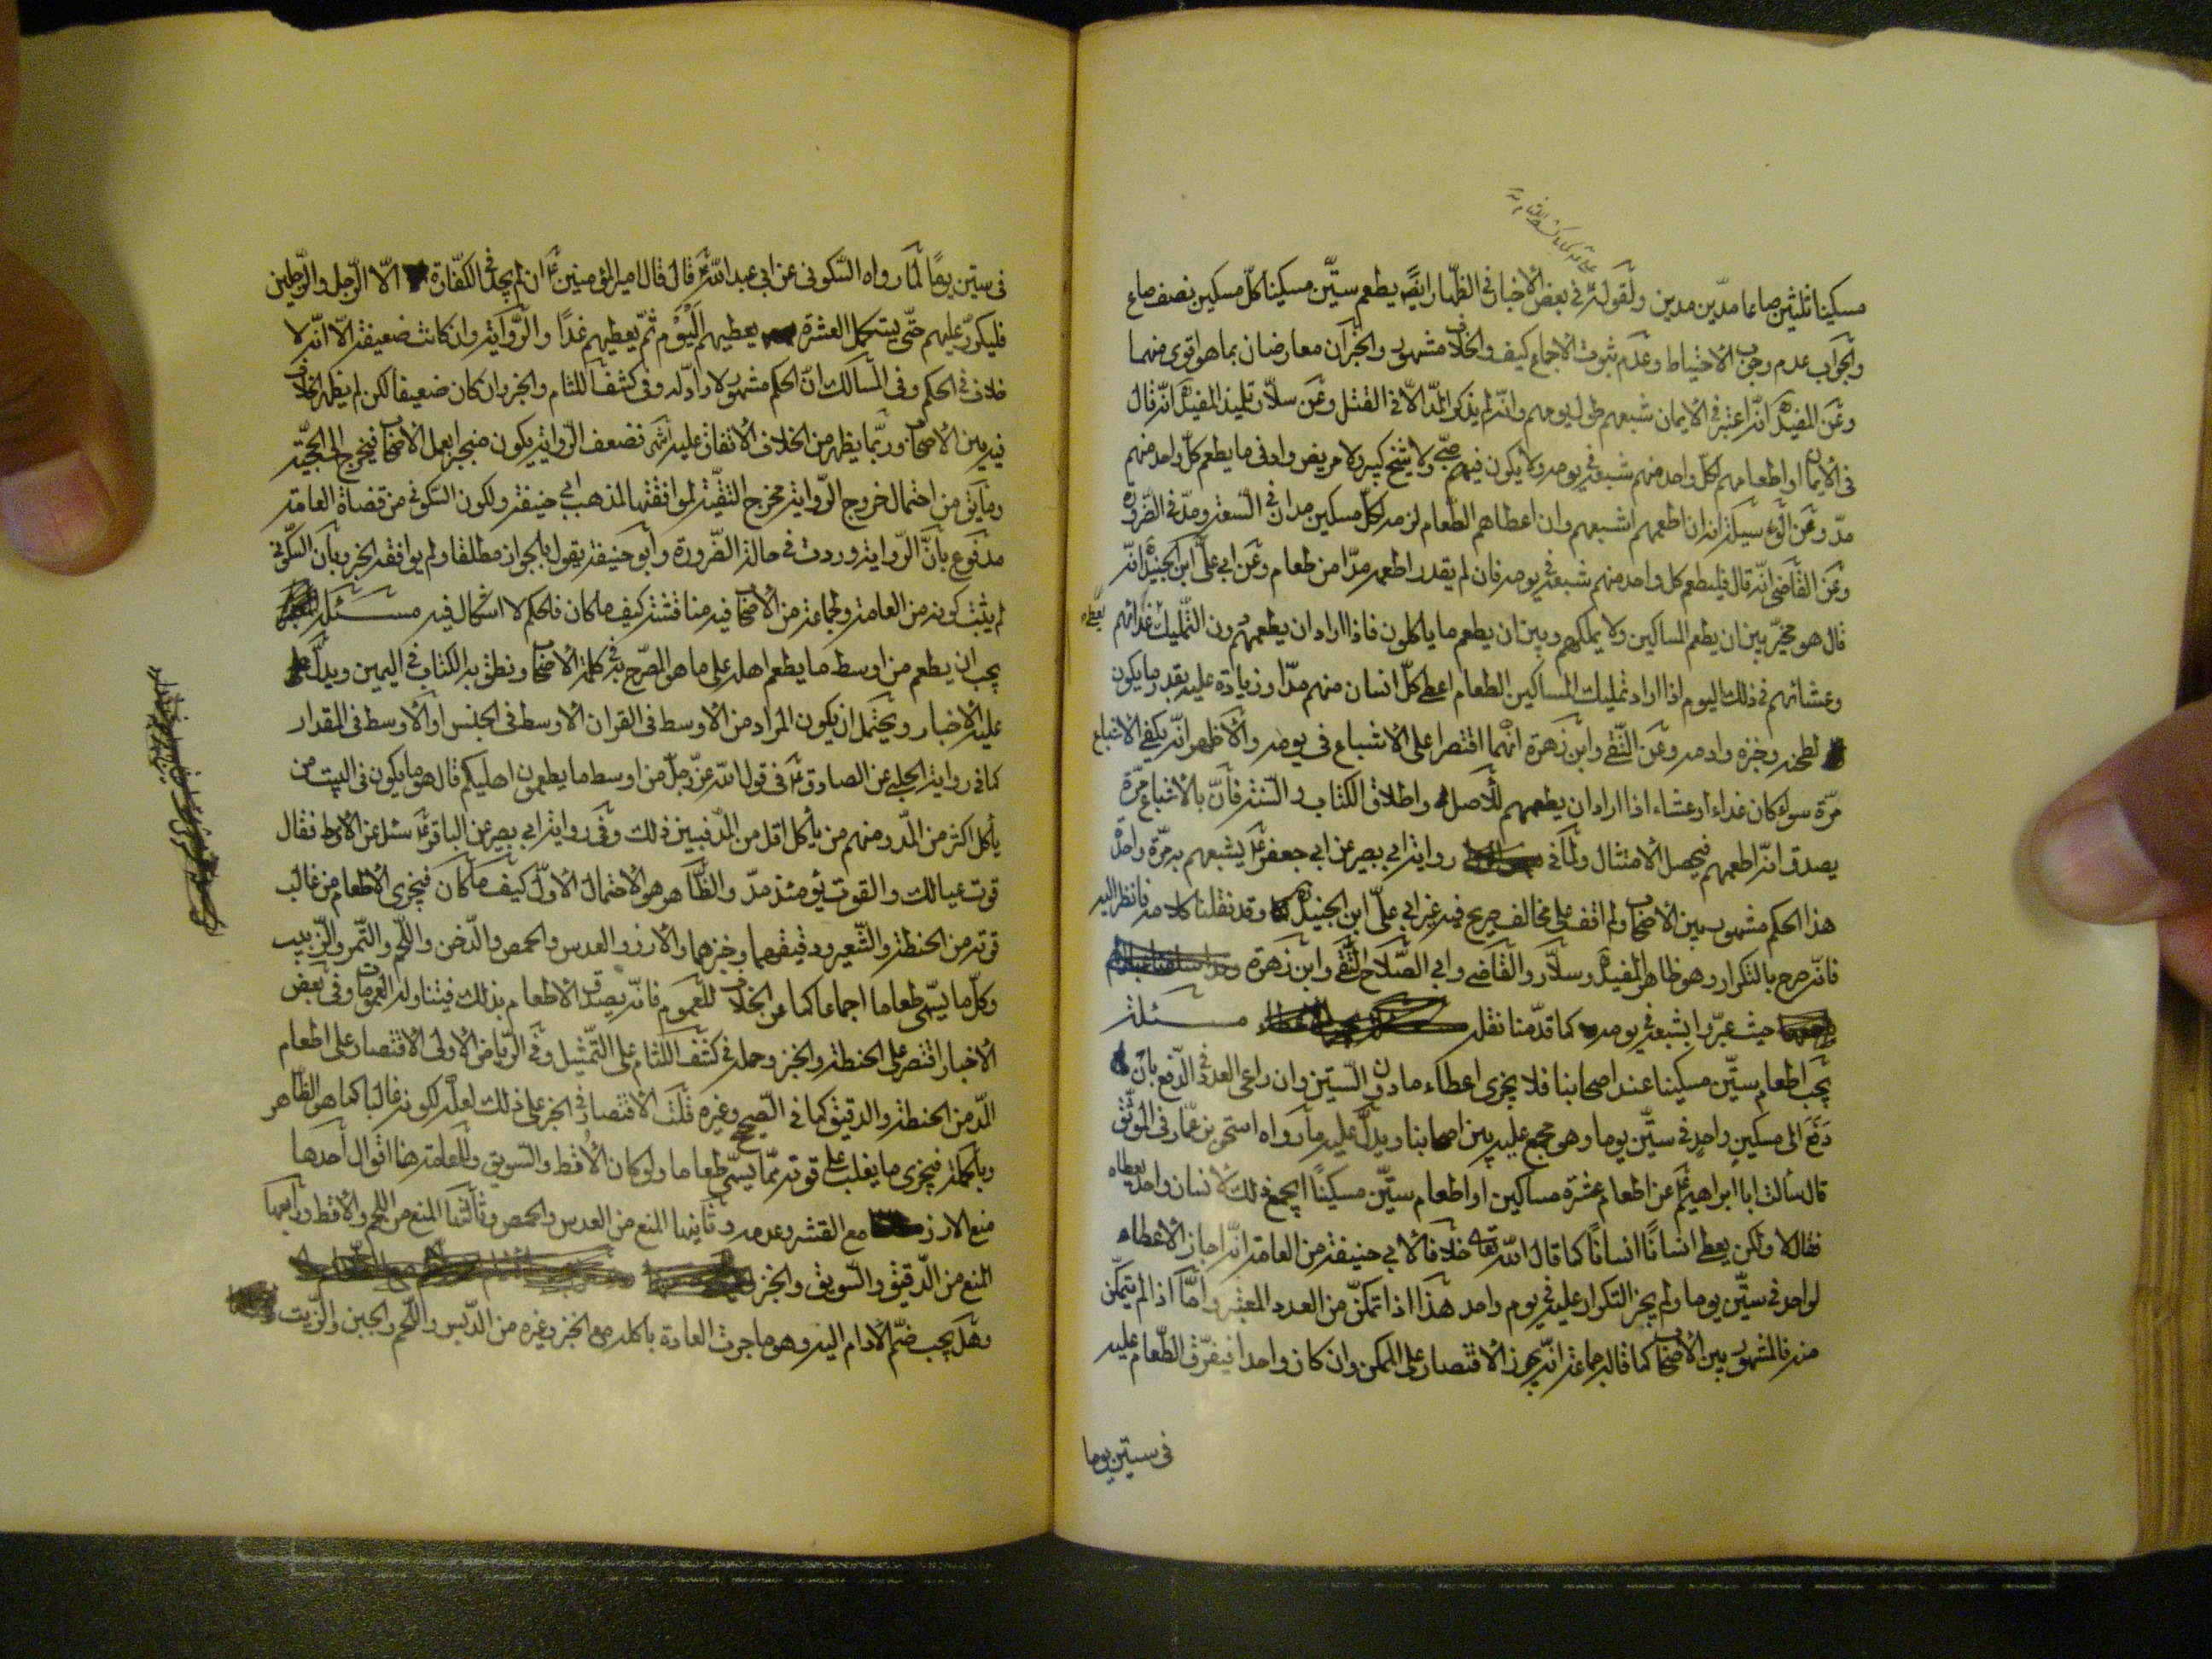 مسكينا ثلثين صاعا مدّين مدين ولقوله في بعض الأخبار في الظهار ايضا يطعم ستّين مسكينا كلّ مسكين نصف صاع
والجواب عدم وجوب الاحتياط وعدم ثبوت الاجماع كيف والخلاف مشهور والخبران معارضان بما هو اقوى منهما
وعن المفيد انّه اعتبر في الايمان شبعهم طول يومهم وانّه لم يذكر المدّ الّا في القتل وعن سلّار تلميذ المفيد انّه قال
في الأيمان او اطعامهم لكلّ واحد منهم شبعه في يومه ولا يكون فيهم صبّي ولا شيخ كبير ولا مريض وادنى ما يطعم كلّ واحد منهم
مدّ وعن انه ان اطعمهم اشبعهم وان اعطاهم الطّعام لزمه لكلّ مسكين مدان في السّعة ومدّ في الضّرورة
وعن القاضي انّه قال فليطعم كل واحد منهم شبعه في يومه فان لم يقدر اطعمه مدّا من طعام وعن ابي علّى ابن الجنيد انّه
قال هو مخيّر بين ان يطعم المساكين ولا يملكهم وبين ان يطعم ما ياكلون فاذا اراد ان يطعمهم دون التّمليك غدائهم
وعشائهم في ذلك اليوم اذا اراد تمليك المساكين الطعام اعطى كلّ انسان منهم مدّا وزيادة عليه بقدر ما يكون
لطحنه وخبزه وادمه وعن التّقى وابن زهرة انّهما اقتصرا على الاشباع في يومه والأظهر انّه يكفى الاشباع
مرّة سواء كان غداء او عشاء اذا اراد ان يطعمهم للأصل واطلاق الكتاب والسّنة فانّ بالاشباع مرّة
يصدق انّه اطعمهم فيحصل الامتثال ولما في رواية ابي بصير عن ابي جعفر يشبعهم به مرّة واحدة
هذا الحكم مشهور بين الأصحاب ولم اقف على مخالف صريح فيه غير ابي علّى ابن الجنيد وقد نقلنا كلامه فانظر اليه
فانّه صرح بالتكرار وهو ظاهر المفيد وسلّار والقاضى وابي الصّلاح التّقى وابن زهرة
حيث عبّروا بشبعه في يومه كما قدّمنا نقله مسئلة
يجب اطعام ستّين مسكينا عند اصحابنا فلا يجزى اعطاء مادون السّتين وان راعى العدد في الدّفع بان
دفع الى مسكين واحد في ستّين يوما وهو مجمع عليه بين اصحابنا ويدلّ عليه ما رواه اسحق بن عمّار في الموثّق
قال سألت ابا ابراهيم عن اطعام عشرة مساكين او اطعام ستّين مسكينًا ايجمع ذلك لانسان واحد يعطاه
فقال لا ولكن يعطى انسانًا انسانًا كما قال اللّه تعالى خلافا لابي حنيفة من العامّة انّه اجاز الأعطاء
لواحد في ستّين يوما ولم يجز التكرار عليه في يوم واحد هذا اذا تمكّن من العدد المعتبر وامّا اذا لم يتمكّن
منه فالمشهور بين الأصحاب كما قاله جماعة انّه يجوز الاقتصار على الممكن وان كان واحدا فيفرّق الطّعام عليه
في ستين يوما
في ستين يومًا لما رواه السّكوني عن ابي عبد اللّه قال قال امير المؤمنين ان لم يجد في الكفّارة الّا الرّجل والرّجلين
فليكرّر عليهم حتّى يستكمل العشرة يعطيهم اليوم ثمّ يعطيهم غدًا والرّواية وان كانت ضعيفة الّا انّه لا
خلاف في الحكم وفي المسالك انّ الحكم مشهور لا رادّ له وفي كشف اللثام والخبر وان كان ضعيفا لكن لم يظهر الخلاف
فيه بين الأصحاب وربّما يظهر من الخلاف الاتفاق عليه فضعف الرّواية يكون منجبرا بعمل الأصحاب فيخرج الى الحجّية
وما يق من احتمال خروج الرّواية مخرج التقيّة لموافقتها لمذهب ابي حنيفة ولكون السّكونى من قضاة العامّة
مدفوع بانّ الرّواية وردت في حالة الضّرورة وابو حنيفة يقول بالجواز مطلقا ولم يوافقه الخبر وبأن السّكوني
لم يثبت كونه من العامّة ولجماعة من الأصحاب فيه مناقشة كيف ما كان فالحكم لا اشكال فيه مسئلة
يجب ان يطعم من اوسط ما يطعم اهله على ما هو المصّرح به في كلمة الأصحاب ونطق به الكتاب في اليمين ويدلّ
عليه الأخبار ويحتمل ان يكون المراد من الأوسط في القران الاوسط في الجنس او الأوسط في المقدار
كما في رواية الحلبى عن الصادق في قول اللّه عزّ وجلّ من اوسط ما يطعمون اهليكم قال هو ما يكون في البيت من
يأكل اكثر من المدّ ومنهم من يأكل اقل من المدّ فبيين ذلك وفي رواية ابي بصير عن الباقر سئل عن الاوسط فقال
قوت عيالك والقوت يومئذ مدّ والظّاهر هو الاحتمال الاوّل كيف ما كان فيجزى الاطعام من غالب
قوته من الحنطة والشّعير ودقيقهما وخبزهما والارز والعدس والحمص والدّخن واللّحم والتّمر والزّبيب
وكلّ ما يسمّى طعاما اجماعا كما عن الخلاف للعموم فانّه يصدق الاطعام بذلك فيتناوله العمومات وفي بعض
الأخبار اقتصر على الحنطة والخبز وحمله في كشف اللثام على التّمثيل وفي الرّياض الاولى الاقتصار على اطعام
المدّ من الحنطة والدقيق كما في الصّحيح وغيره قلت الاقتصار في الخبر على ذلك لعلّه لكونه غالبا كما هو الظّاهر
وبالجملة فيجزى ما يغلب على قوته ممّا يسمّى طعاما ولو كان الأقط والسّويق وللعامة هنا اقوال احدها
منع الارز مع القشر وعدمه وثانيها المنع من العدس والحمص وثالثها المنع من اللحم والاقط ورابعها
المنع من الدّقيق والسّويق والخبز
وهل يجب ضمّ الادام اليه وهو ما جرت العادة باكله مع الخبز وغيره من الدّبس واللّحم والجبن والزّيت